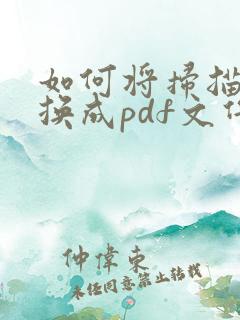 如何将扫描
换成pdf文件
仲偉東
未经同意禁止转载